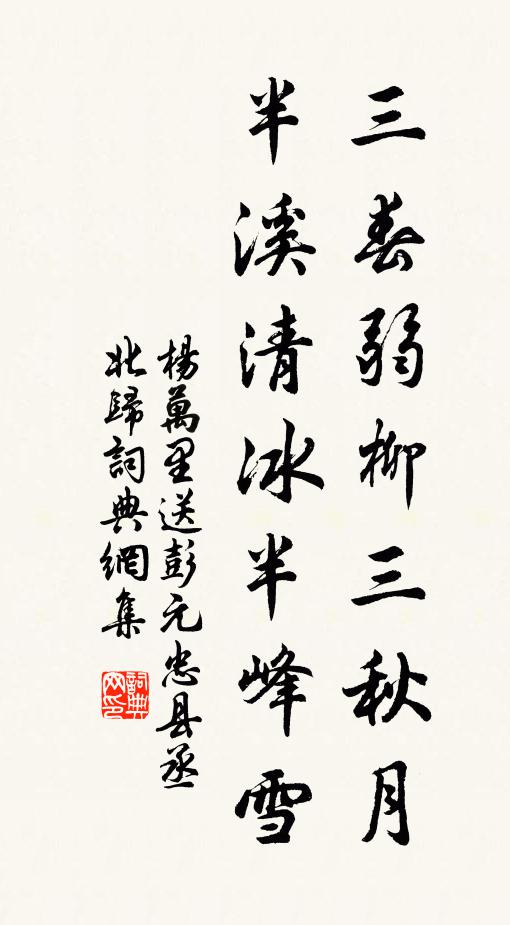 三春弱柳三秋月
半溪清冰半峰雪
楊萬里送彭元忠县丞
北歸詞典網集
詞典
网印